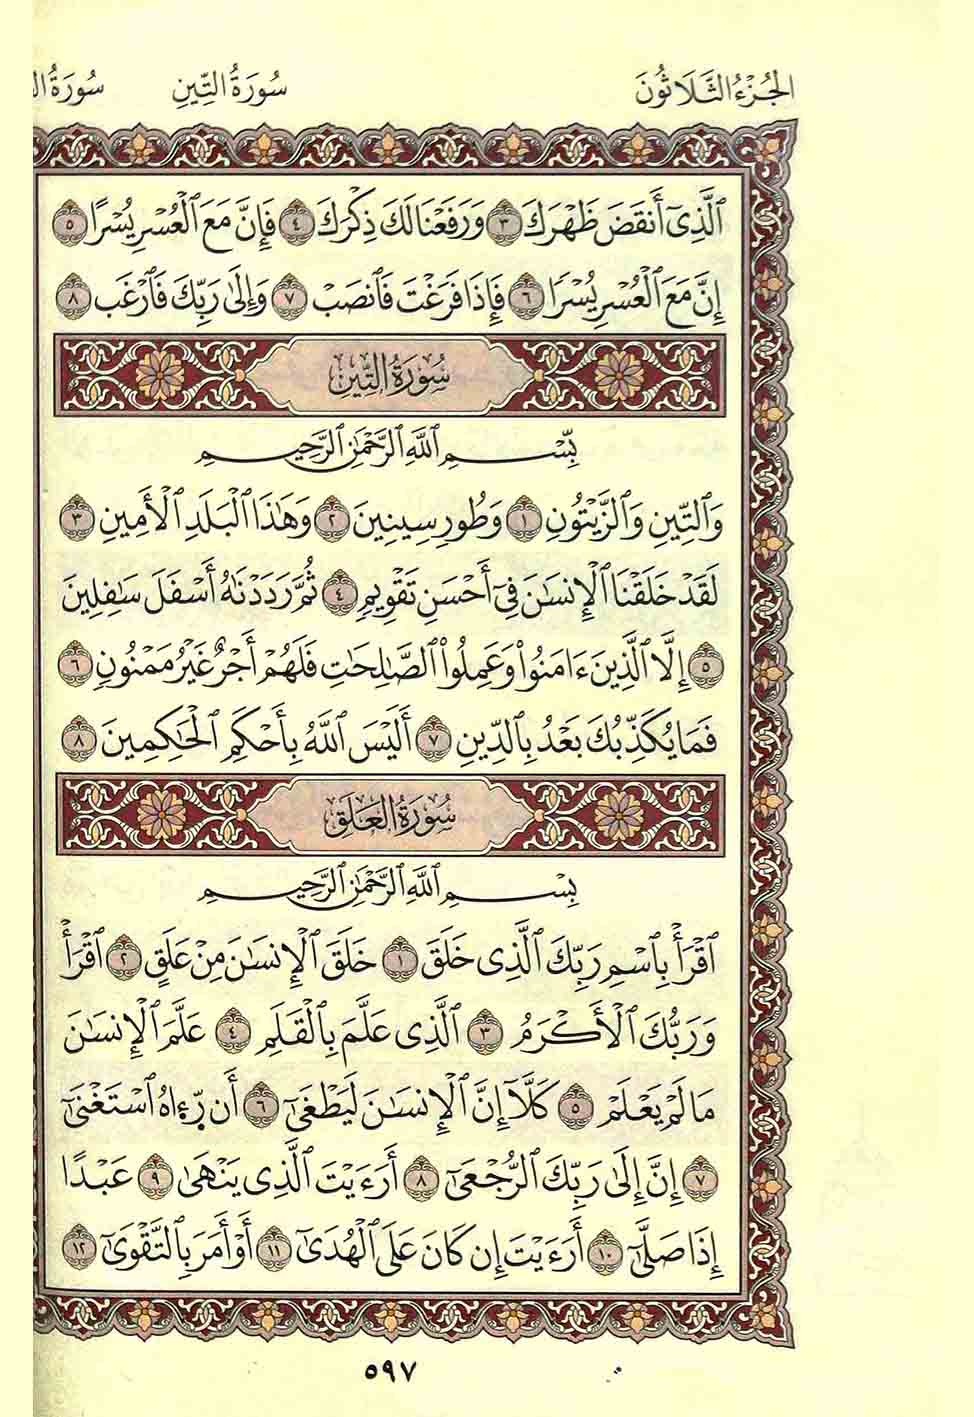 الجُزْءُ الثَّلَاثُونَ سُورَةُ التِّينِ سُورَةُ
ٱلَّذِىٓ أَنقَضَ ظَهْرَكَ ٣ وَرَفَعْنَا لَكَ ذِكْرَكَ ٤ فَإِنَّ مَعَ ٱلْعُسْرِ يُسْرًا ٥
إِنَّ مَعَ ٱلْعُسْرِ يُسْرًا ٦ فَإِذَا فَرَغْتَ فَٱنصَبْ ٧ وَإِلَىٰ رَبِّكَ فَٱرْغَب ٨
سُورَةُ التِّينِ
بِّسْمِ ٱللَّهِ ٱلرَّحْمَٰنِ ٱلرَّحِيمِ
وَٱلتِّينِ وَٱلزَّيْتُونِ ١ وَطُورِ سِينِينَ ٢ وَهَٰذَا ٱلْبَلَدِ ٱلْأَمِينِ ٣
لَقَدْ خَلَقْنَا ٱلْإِنسَٰنَ فِىٓ أَحْسَنِ تَقْوِيمٍ ٤ ثُمَّ رَدَدْنَٰهُ أَسْفَلَ سَٰفِلِينَ
٥ إِلَّا ٱلَّذِينَ ءَامَنُوا۟ وَعَمِلُوا۟ ٱلصَّٰلِحَٰتِ فَلَهُمْ أَجْرٌ غَيْرُ مَمْنُونٍ ٦
فَمَا يُكَذِّبُكَ بَعْدُ بِٱلدِّينِ ٧ أَلَيْسَ ٱللَّهُ بِأَحْكَمِ ٱلْحَٰكِمِينَ ٨
سُورَةُ العَلَقِ
بِسْمِ ٱللَّهِ ٱلرَّحْمَٰنِ ٱلرَّحِيمِ
ٱقْرَأْ بِٱسْمِ رَبِّكَ ٱلَّذِى خَلَقَ ١ خَلَقَ ٱلْإِنسَٰنَ مِنْ عَلَقٍ ٢ ٱقْرَأْ
وَرَبُّكَ ٱلْأَكْرَمُ ٣ ٱلَّذِى عَلَّمَ بِٱلْقَلَمِ ٤ عَلَّمَ ٱلْإِنسَٰنَ
مَا لَمْ يَعْلَمْ ٥ كَلَّآ إِنَّ ٱلْإِنسَٰنَ لَيَطْغَىٰٓ ٦ أَن رَّءَاهُ ٱسْتَغْنَىٰٓ
٧ إِنَّ إِلَىٰ رَبِّكَ ٱلرُّجْعَىٰٓ ٨ أَرَءَيْتَ ٱلَّذِى يَنْهَىٰ ٩ عَبْدًا
إِذَا صَلَّىٰٓ ١٠ أَرَءَيْتَ إِن كَانَ عَلَى ٱلْهُدَىٰٓ ١١ أَوْ أَمَرَ بِٱلتَّقْوَىٰٓ ١٢
٥٩٧